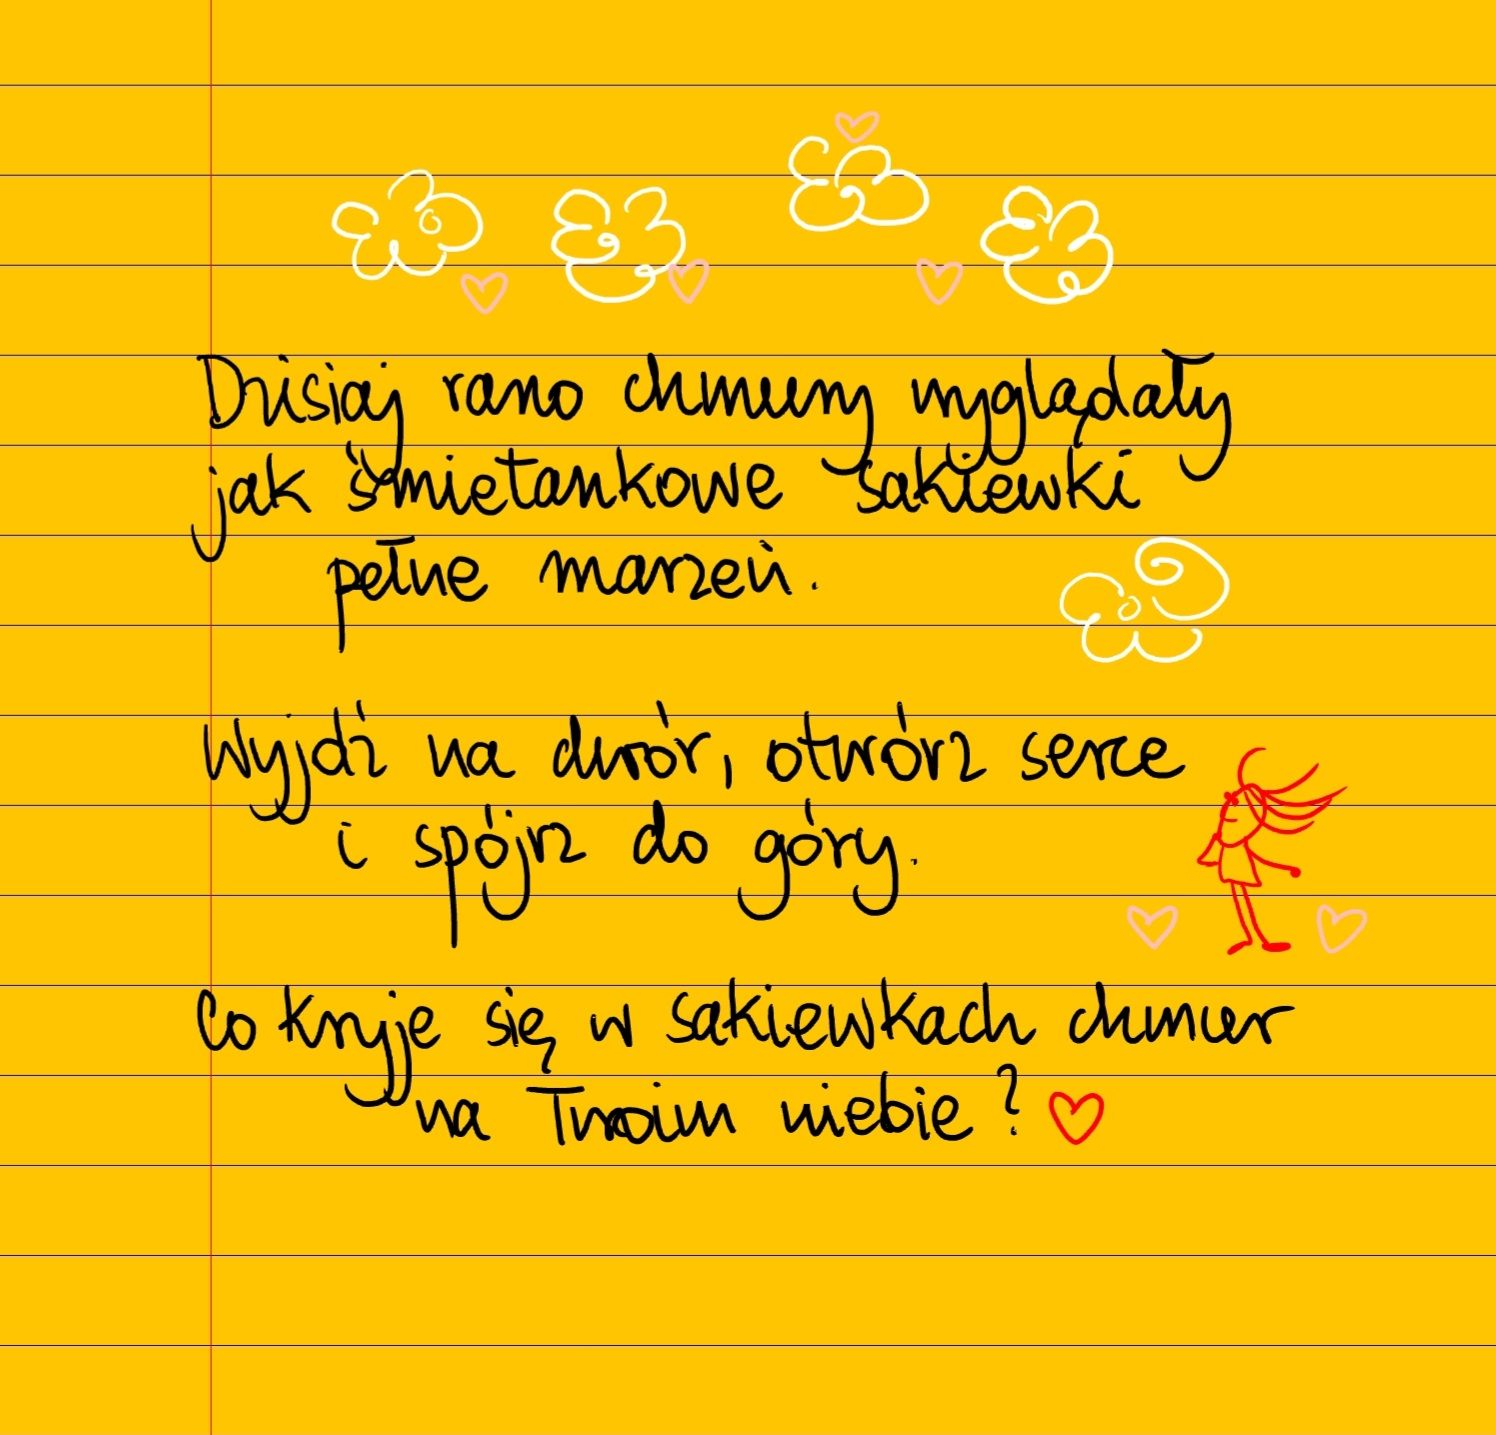 Dzisiaj rano chmury wyglądały
jak śmietankowe sakiewki
pełne marzeń.
Wyjdź na dwór, otwórz serce
i spójrz do góry.
Co kryje się w sakiewkach chmur
na Twoim niebie?